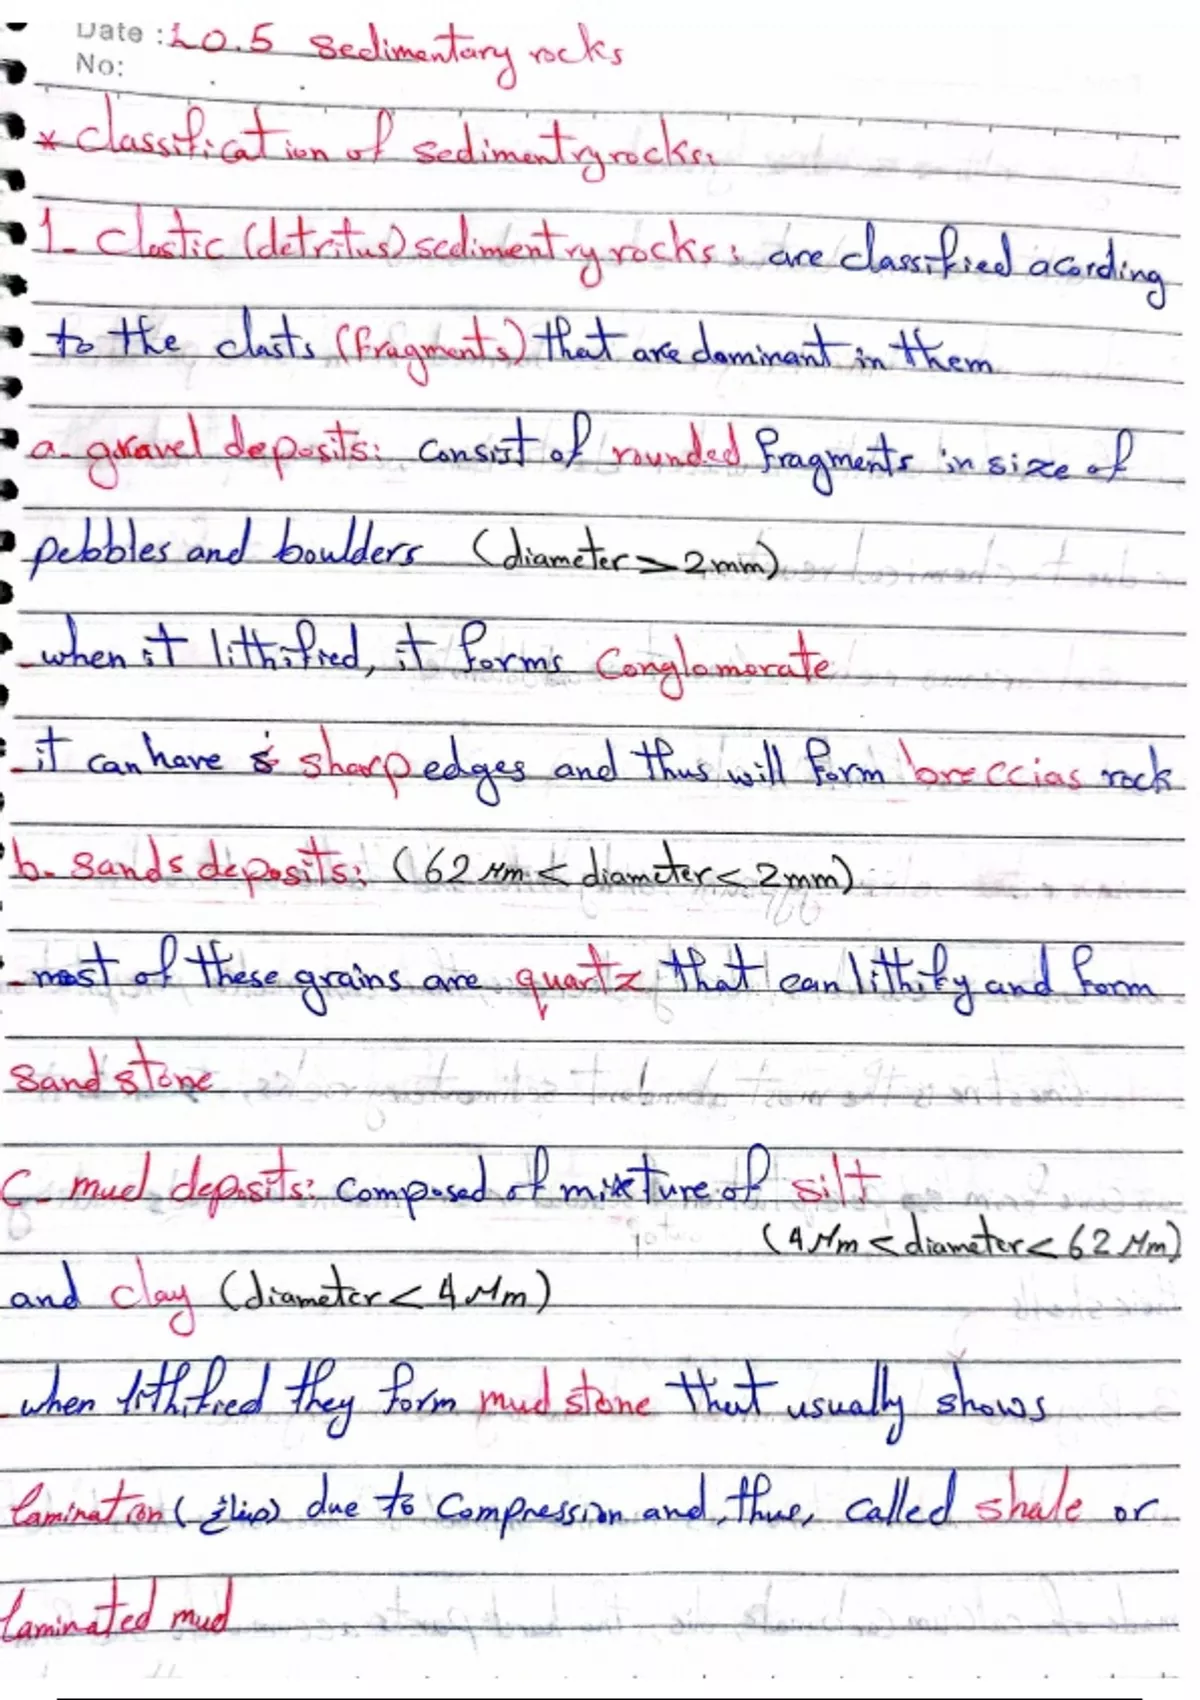 Date : LO.5 sedimentary rocks
No:
* classification of sedimentry rocks:
1- clastic (detritus) sedimentry rocks: are classified acording
to the clasts (fragments) that are dominant in them
a- gravel deposits: consist of rounded fragments in size of
pebbles and boulders (diameter > 2mm)
- when it lithified, it forms Conglomerate
- it can have sharp edges and thus will form breccias rock
b- sands deposits: (62 Mm < diameter < 2mm)
- most of these grains are quartz that can lithify and form
sand stone
C- mud deposits: composed of mixture of silt
(4 Mm < diameter < 62 Mm)
and clay (diameter < 4 Mm)
- when lithified they form mud stone that usually shows
lamination (صفائح) due to compression and, thus, called shale or
laminated mud